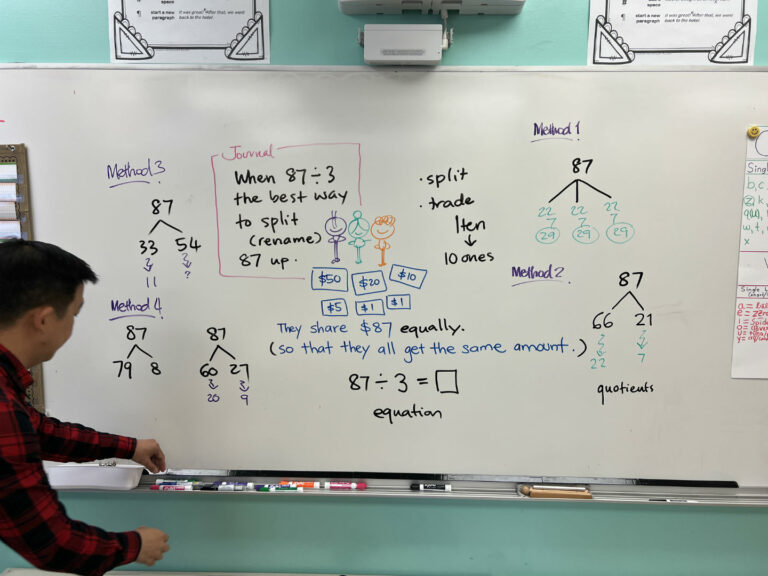 space
start a new
paragraph
it was great! After that, we went
back to the hotel.
space
start a new
paragraph
it was great! After that, we went
back to the hotel.
Method 3
87
33 54
11 ?
Method 4
87
79 8
87
60 27
20 9
Journal
When 87÷3
the best way
to split
(rename)
87 up.
$50 $20 $10
$5 $1 $1
They share $87 equally.
(so that they all get the same amount.)
87÷3=□
equation
·split
·trade
1ten
↓
10 ones
Method 1
87
22 22 22
7 7 7
29 29 29
Method 2
87
66 21
22 7
quotients
Sing
b, c,
w, t,
x
Single
a =
e =
i =
o =
u =
y =